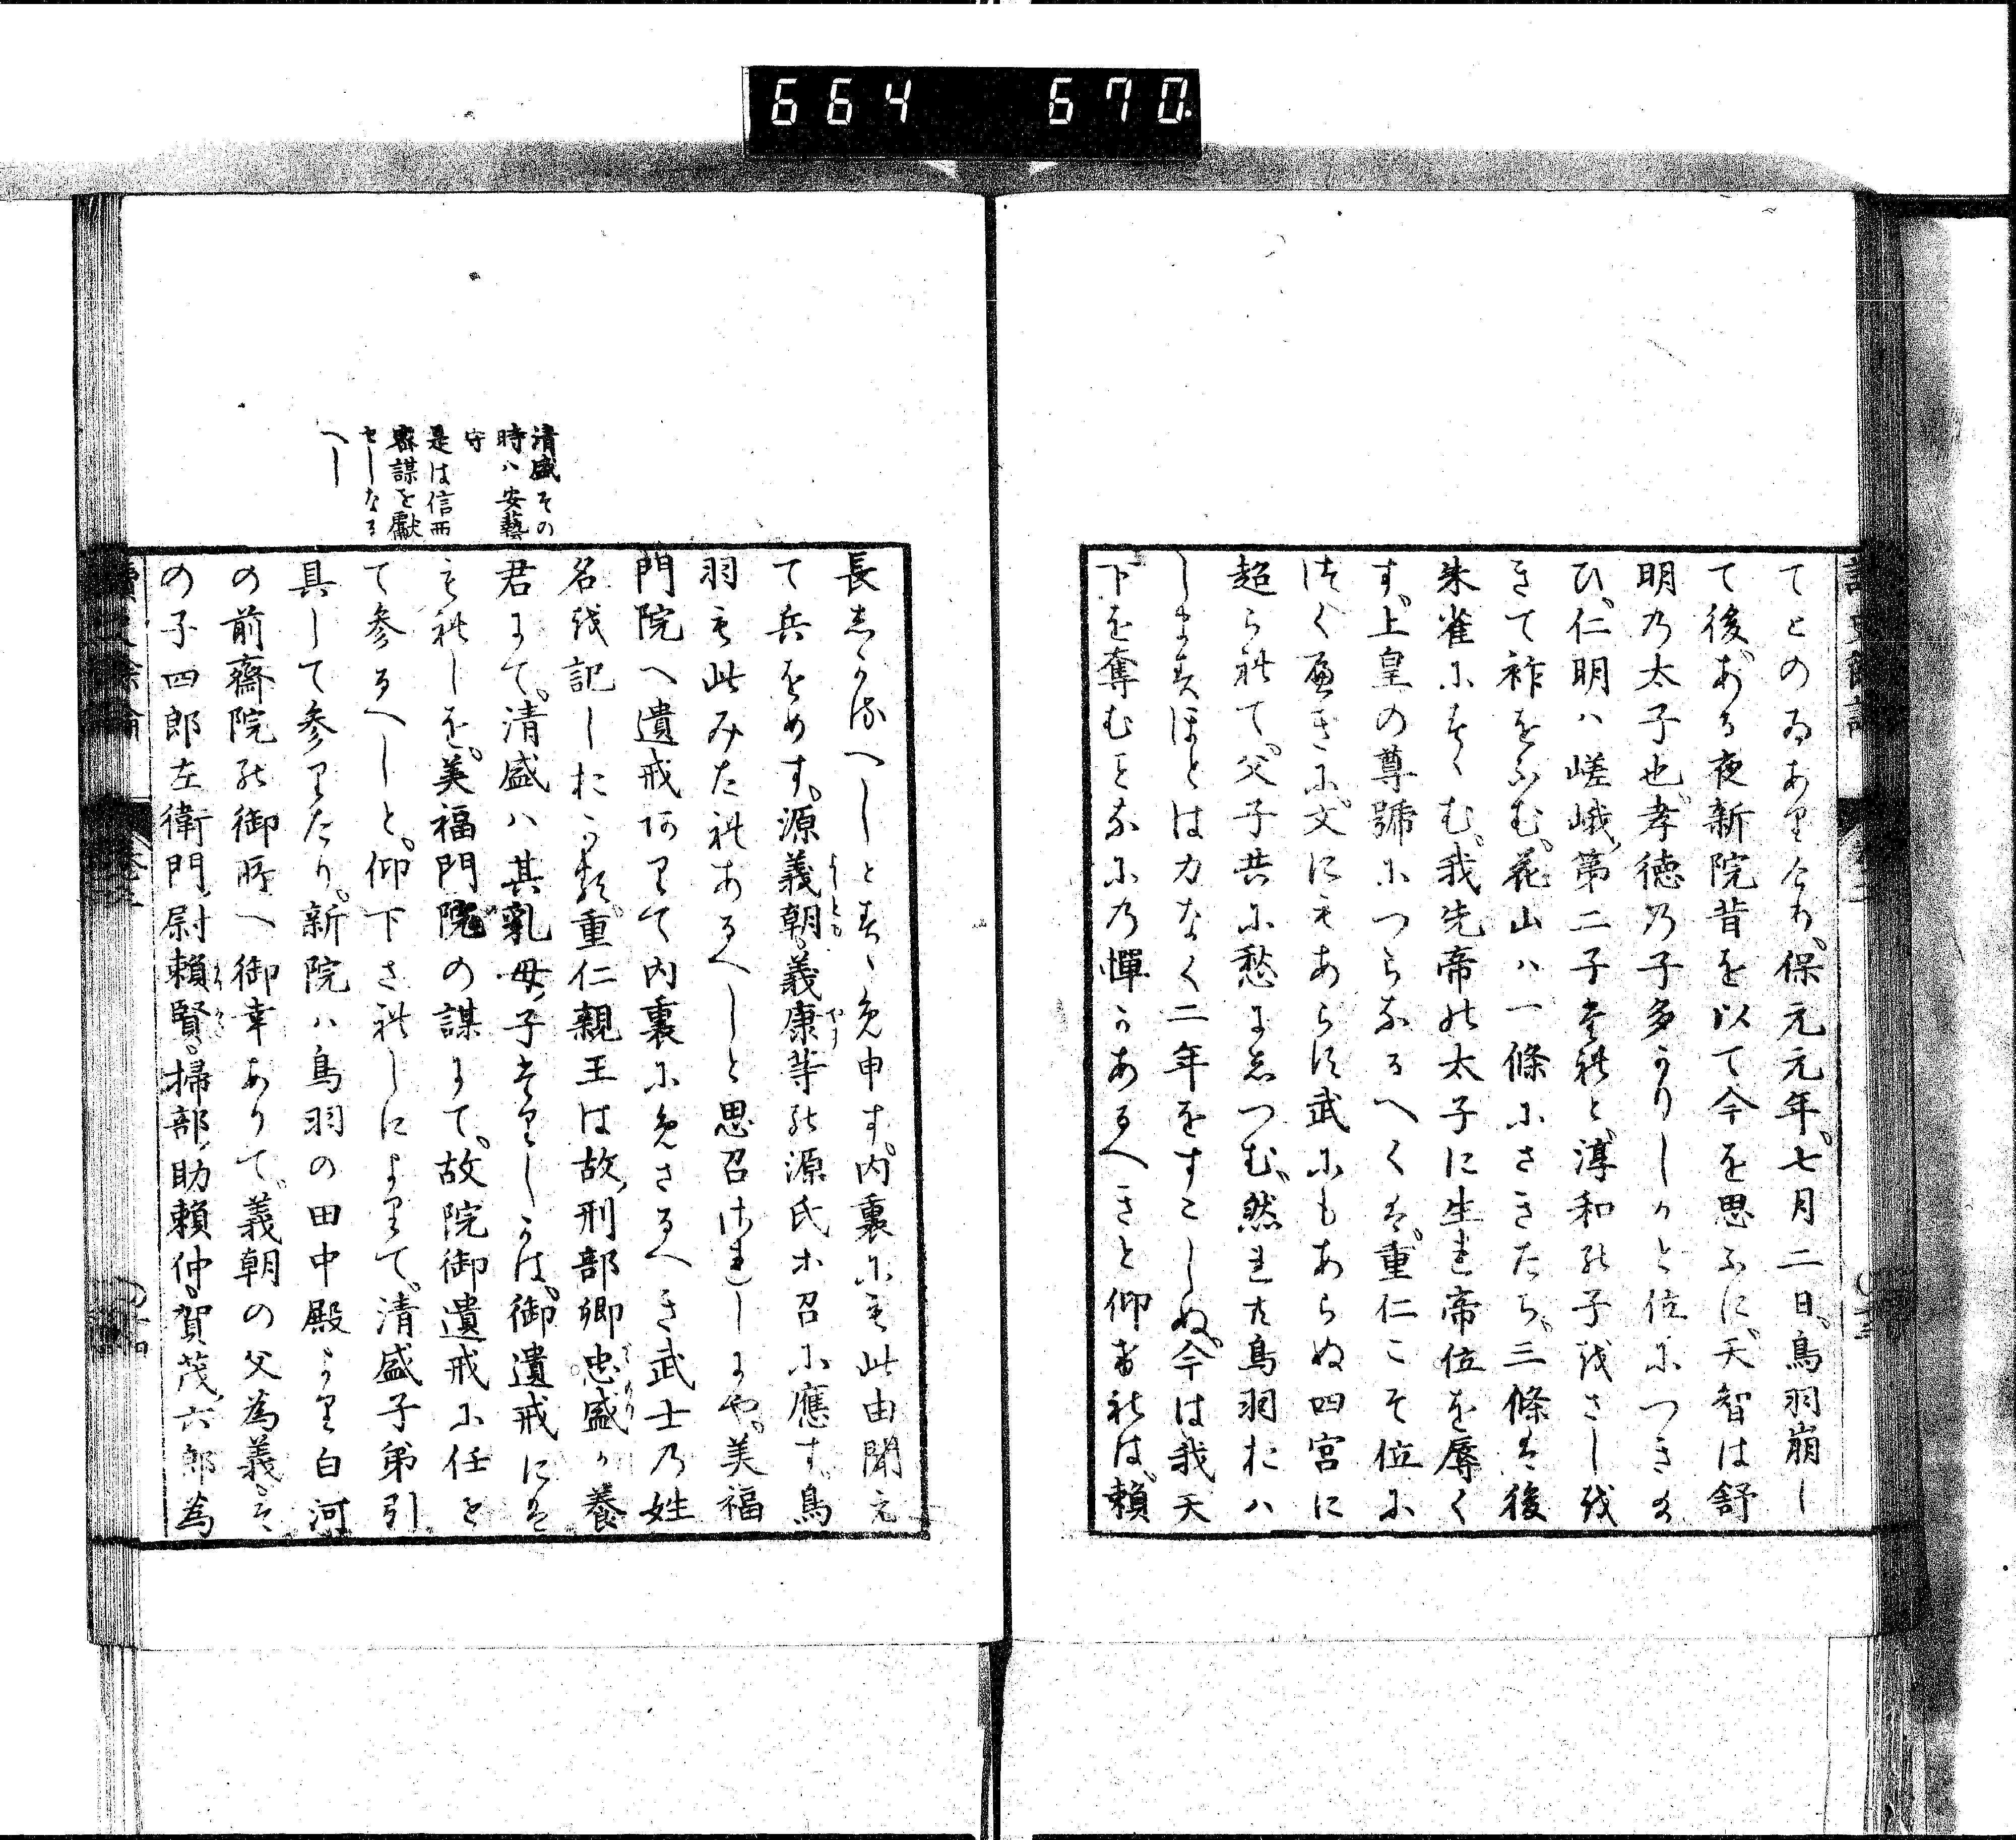 664 670
てとのゐあり今ち、保元元年、七月二日、鳥羽崩し
て後、ある夜新院昔を以て今を思ふに、天智は舒
明乃太子也、孝徳乃子多かりしかと位につき給
ひ、仁明ハ嵯峨、第二子それと、淳和の子をさしを
きて祚をふむ、花山ハ一條にさきたち、三條は後
朱雀にすゝむ、我先帝の太子に生れ帝位を辱く
す、上皇の尊號につらなるへくは、重仁こそ位に
つくへきに、文にもあらす武にもあらぬ四宮に
超られて、父子共に愁にしつむ、然れ共鳥羽おハ
しますほとは力なく二年をすこしぬ、今は我天
下を奪むことなにの憚かあるへきと仰ければ、頼
長しかるへしとすゝめ申す、内裏にも此由聞え
て兵をめす、源義朝義康等の源氏ホ召に應す、鳥
羽も此みたれあるへしと思召けれしにや、美福
門院へ遺戒ありて内裏にめさるへき武士乃姓
名を記しおかる、重仁親王は故、刑部卿忠盛か養
君にて、清盛ハ其乳母、子なりしかは、御遺戒には
もれしを、美福門院の謀にて、故院御遺戒に任を
て参るへしと、仰下されしによりて、清盛子弟引
具して参りたり、新院ハ鳥羽の田中殿より白河
の前齋院の御所へ御幸ありて、義朝の父為義を
の子四郎左衛門、尉頼賢、掃部、助頼仲、賀茂、六郎為
清盛その
時ハ安藝
守
是は信西
密謀を獻
せしなる
へし